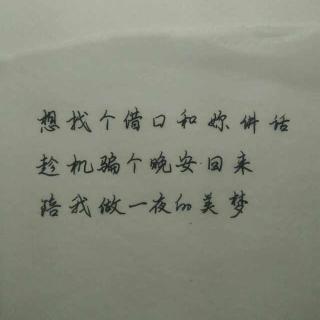 想找个借口和妳讲话
趁机骗个晚安回来
陪我做一夜的美梦